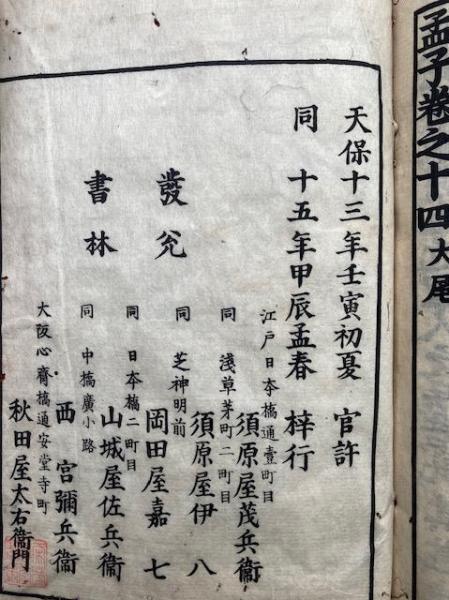 孟子卷之十四大尾
天保十三年壬寅初夏 官許
同 十五年甲辰孟春 梓行
江戸日本橋通壹町目
須原屋茂兵衞
同 淺草茅町二町目
須原屋伊八
發兊
同 芝神明前
岡田屋嘉七
同 日本橋二町目
山城屋佐兵衞
書林
同 中橋廣小路
西宮彌兵衞
大阪心齋橋通安堂寺町
秋田屋太右衞門